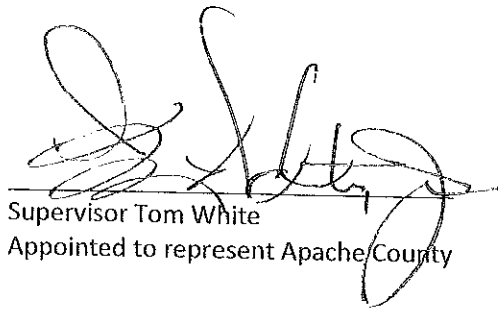 Supervisor Tom White
Appointed to represent Apache County